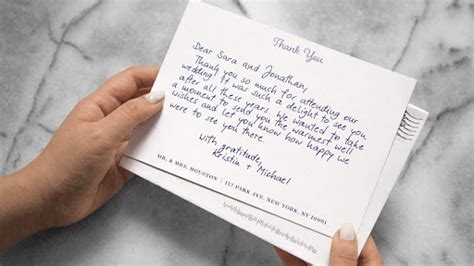 Thank You
Dear Sara and Jonathan,
Thank you so much for attending our
wedding! It was such a delight to see you
after all these years. We wanted to take
a moment to send you the warmest well
wishes and let you know how happy we
were to see you there.
With gratitude,
Kristin + Michael
MR. & MRS. HOUSTON | 157 PARK AVE. NEW YORK, NY 10091